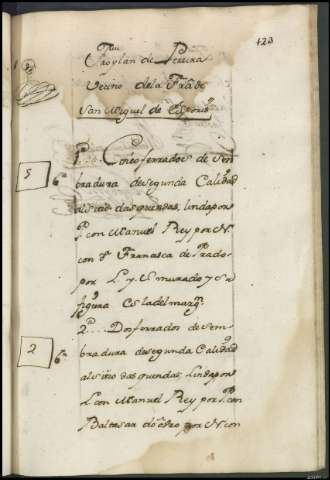 423
Froylan de Pereira
Vecino de la Fra de
San Miguel de
1ª Cinco ferrados de sem
5
bradura de segunda Calidad
al sitio das quendas, linda por
P. con Manuel Rey por N.
con Dª Francisca de Prado
por L. y S. murado y su
figura Es la del margn
2ª Dos ferrados de sem
2
bradura de segunda Calidad
al sitio das quendas, Linda por
L. con Manuel Rey por P. con
Baltasar do por N. con